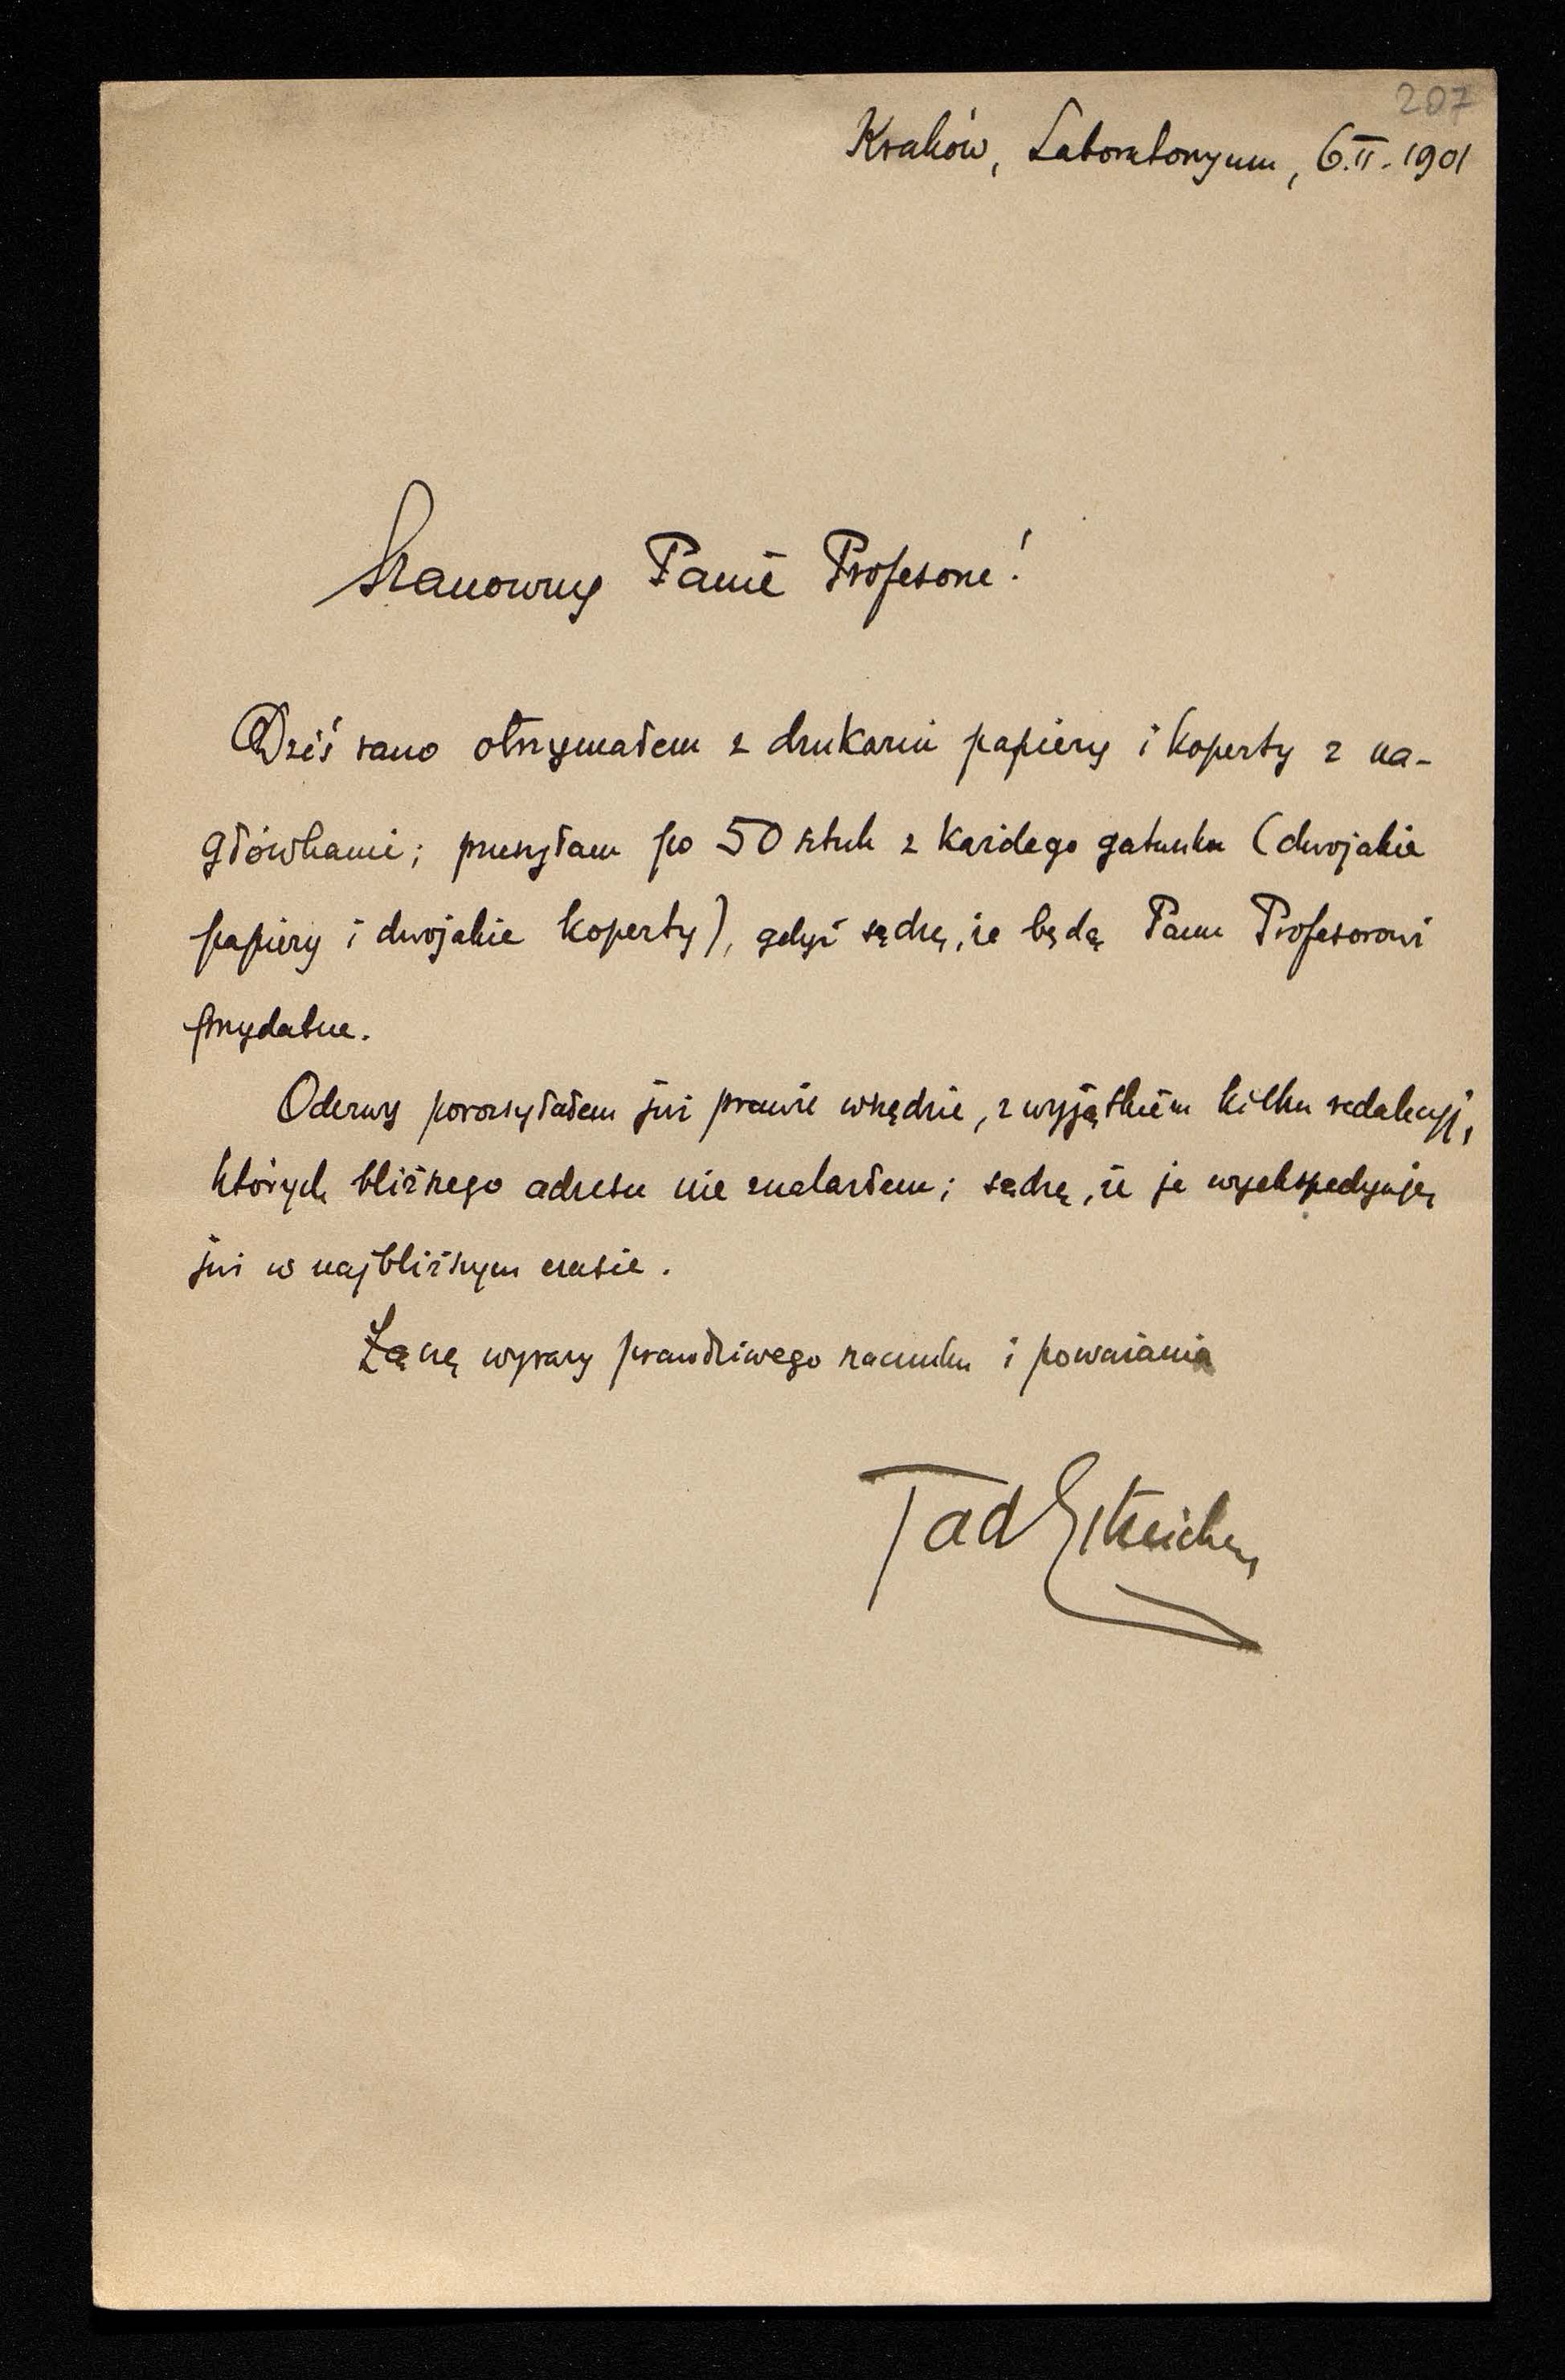 207
Kraków, Laboratoryum, 6.II.1901
Szanowny Panie Profesorze!
Dziś rano otrzymałem z drukarni papiery i koperty z na-
główkami; przesyłam po 50 sztuk z każdego gatunku (dwojakie
papiery i dwojakie koperty), gdyż sądzę, że będą Panu Profesorowi
przydatne.
Odezwy porozsyłałem już prawie wszędzie, z wyjątkiem kilku redakcyj,
których bliższego adresu nie znalazłem; sądzę, że je wyekspedyuję
już w najbliższym czasie.
Łączę wyrazy prawdziwego szacunku i poważania
Tad Estreicher